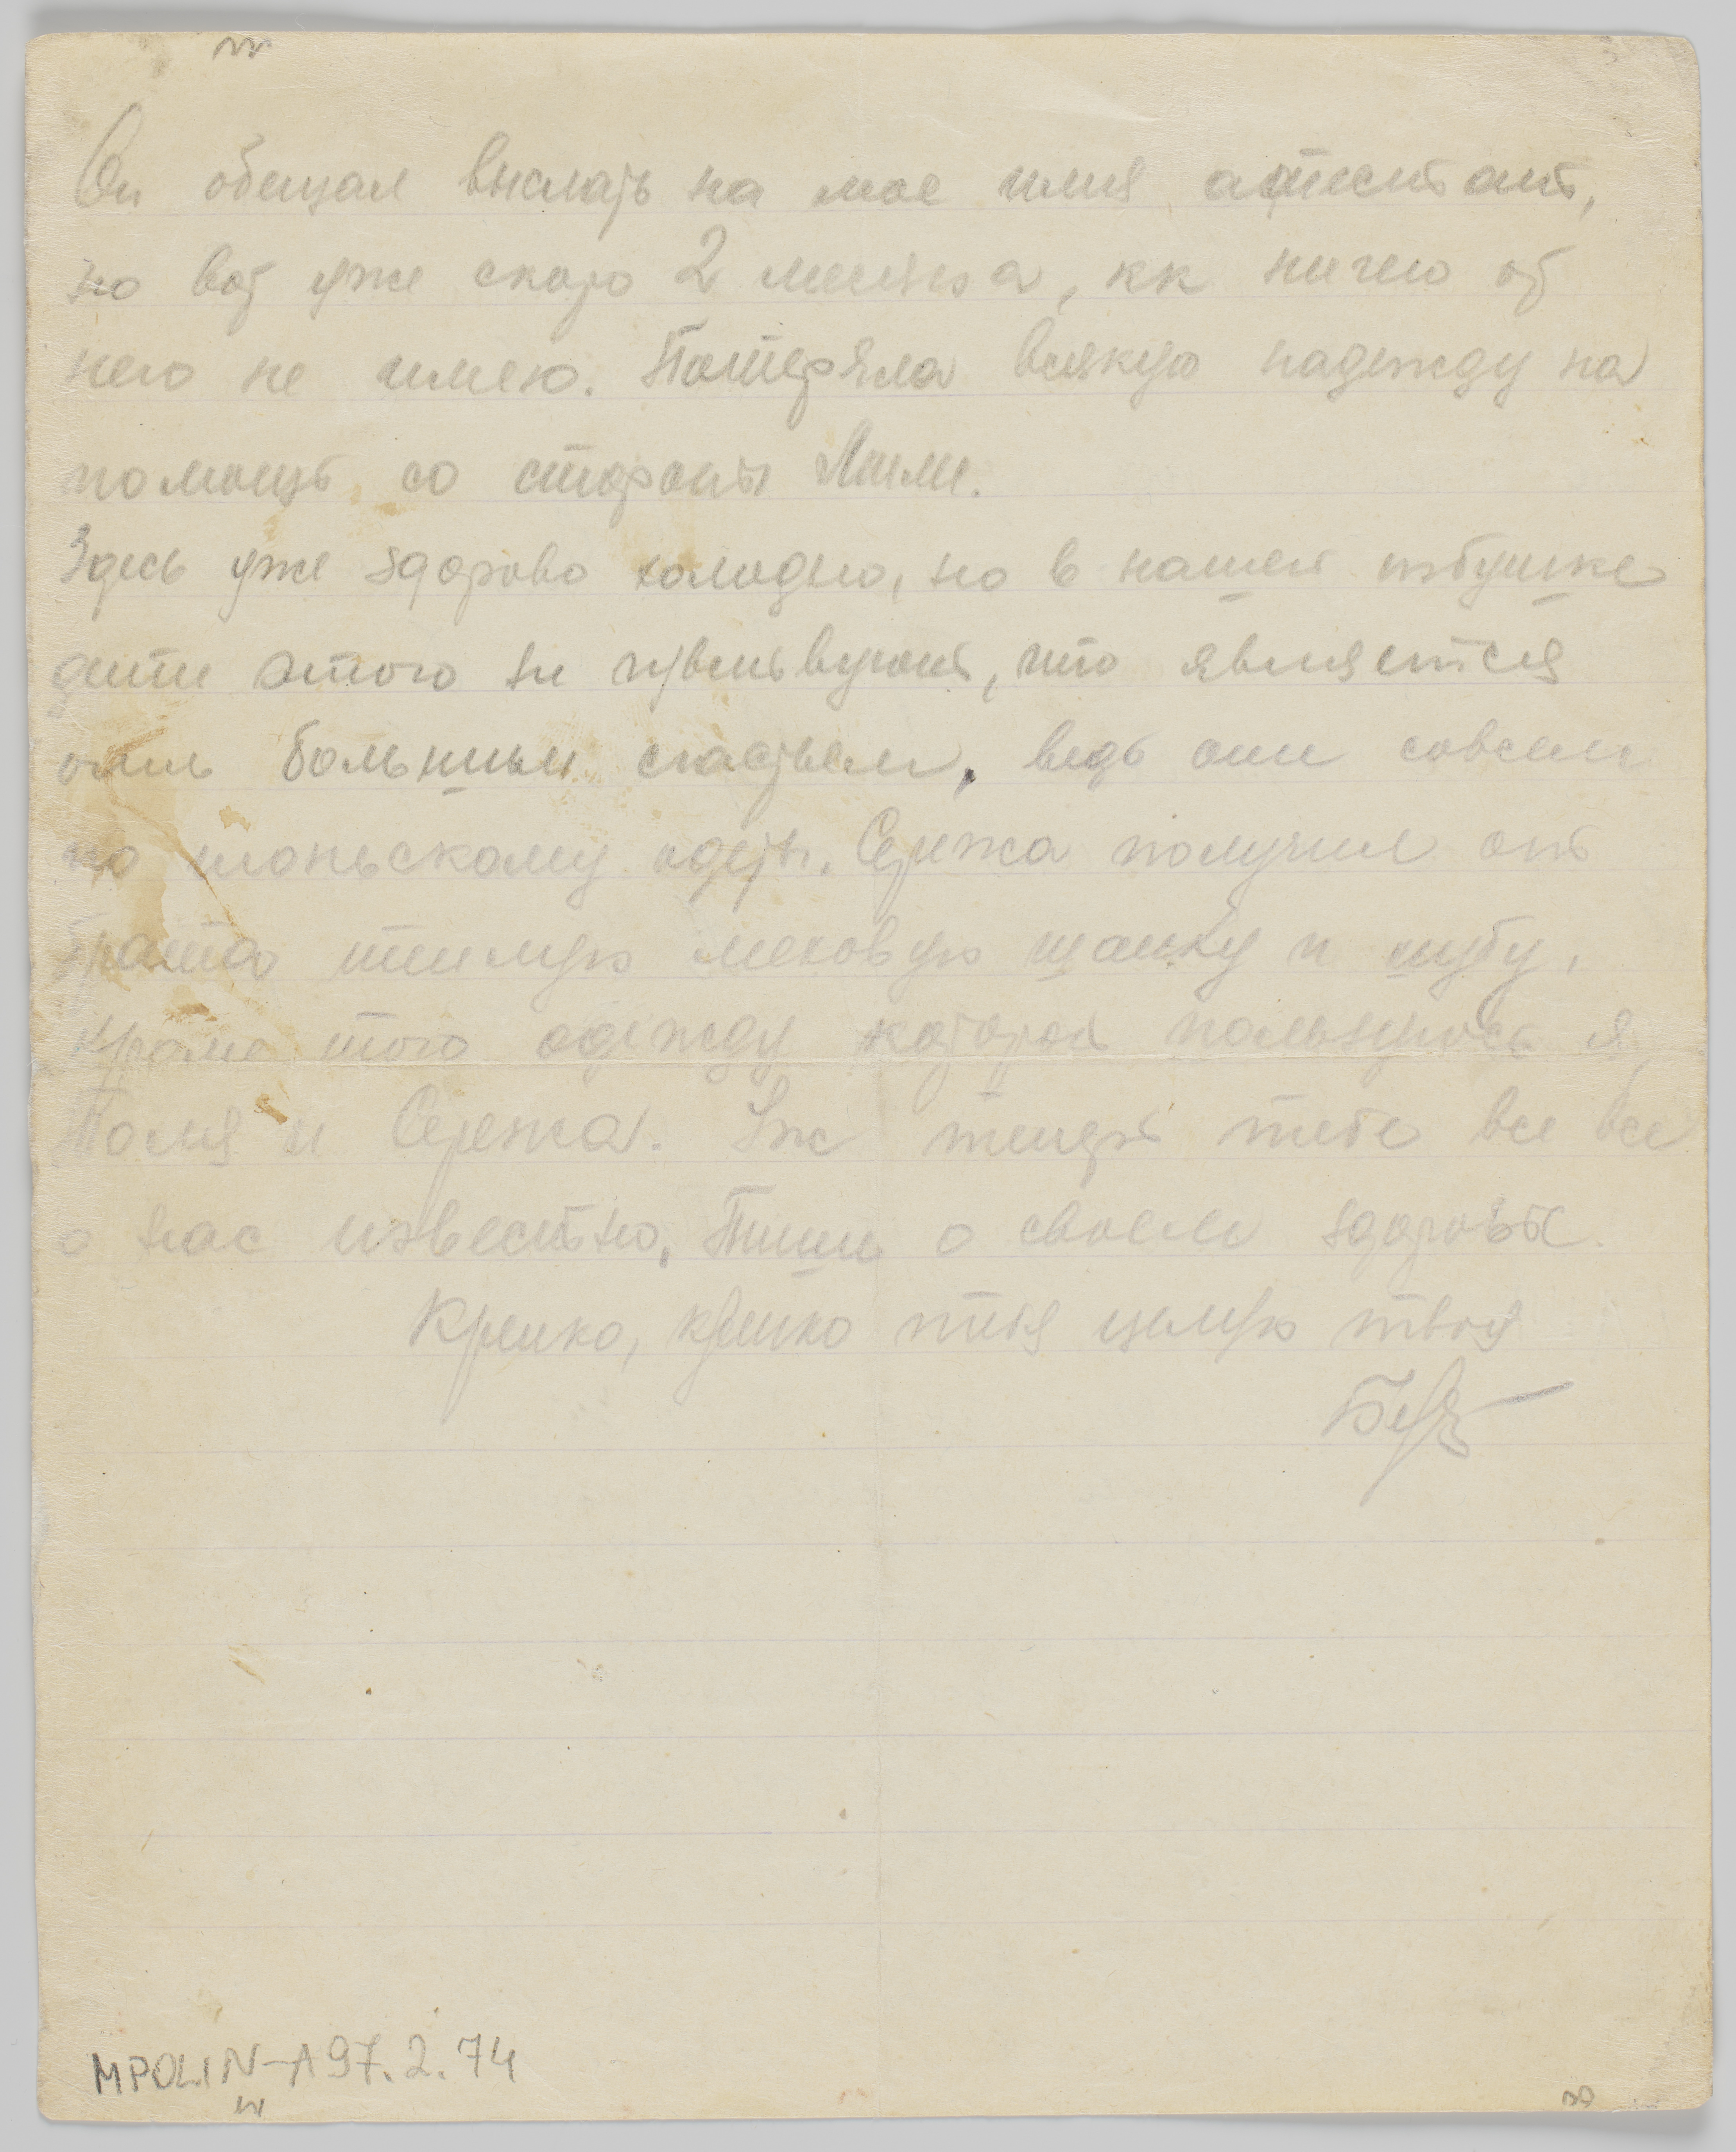 Он обещал выслать на мое имя атестат,
но вот уже скоро 2 месяца, кк ничего от
него не имею. Потеряла всякую надежду на
помощь со стороны Лили.
Здесь уже здорово холодно, но в нашей избушке
дети этого не чувствуют, что является
очень большим счастьем, ведь они совсем
по июньскому одеты. Сережа получил от
брата теплую меховую шапку и шубу,
кроме того одежду которой пользуюсь я,
Толя и Сережа. Уж теперь тебе все все
о нас известно. Пиши о своем здоровье.
Крепко, крепко тебя целую твоя
MPOLIN-A97.2.74